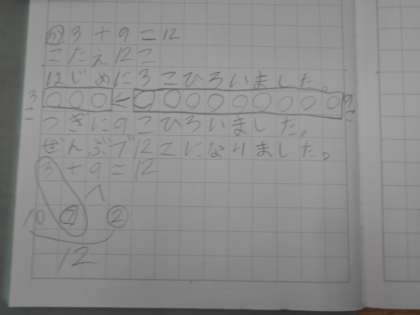 ㋕3+9=12
こたえ12こ
はじめに3こひろいました。
3こ ○○○←○○○○○○○○○ 9こ
つぎに9こひろいました。
ぜんぶで12こになりました。
3+9=12
10 7 2
12